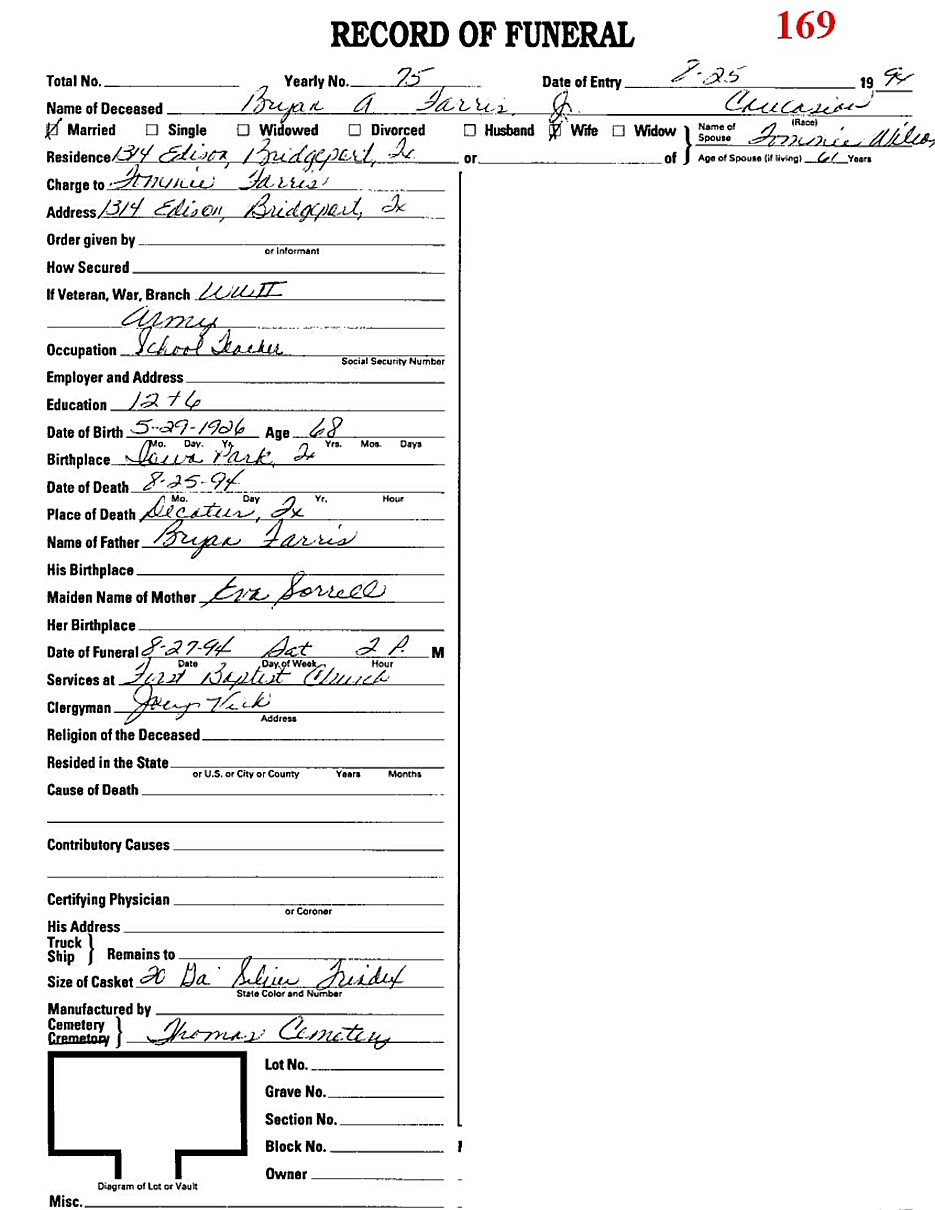 RECORD OF FUNERAL 169
Total No. Yearly No. 75 Date of Entry 8-25 19 94
Name of Deceased Bryan A Farris, Jr. Caucasion
(Race)
Married Single Widowed Divorced Husband Wife Widow } Name of Spouse Tommie Wilson
Residence 1314 Edison, Bridgeport, Tx or of Age of Spouse (if living) 61 Years
Charge to Tommie Farris
Address 1314 Edison, Bridgeport, Tx
Order given by
or informant
How Secured
If Veteran, War, Branch WWII
Army
Occupation School Teacher
Social Security Number
Employer and Address
Education 12+6
Date of Birth 5-29-1926 Age 68
Mo. Day. Yr. Yrs. Mos. Days
Birthplace Iowa Park, Tx
Date of Death 8-25-94
Mo. Day Yr. Hour
Place of Death Decatur, Tx
Name of Father Bryan Farris
His Birthplace
Maiden Name of Mother Eva Sorrell
Her Birthplace
Date of Funeral 8-27-94 Sat 2 P. M
Date Day of Week Hour
Services at First Baptist Church
Clergyman Joey Vick
Address
Religion of the Deceased
Resided in the State
or U.S. or City or County Years Months
Cause of Death
Contributory Causes
Certifying Physician
or Coroner
His Address
Truck
Ship } Remains to
Size of Casket 20 Ga Silver
State Color and Number
Manufactured by
Cemetery
Crematory } Thomas Cemetery
Lot No.
Grave No.
Section No.
Block No.
Owner
Diagram of Lot or Vault
Misc.